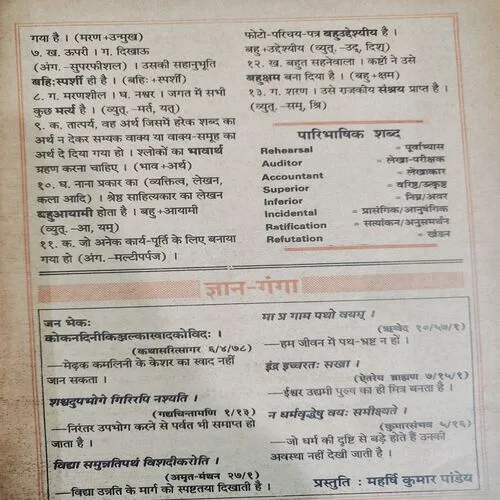 गया है । (मरण+उन्मुख)
७. ख. ऊपरी । ग. दिखाऊ
(अंग. -सुपरफीशल) । उसकी सहानुभूति
बहि:स्पर्शी ही है । (बहि: +स्पर्शी)
८. ग. मरणशील । घ. नश्वर । जगत में सभी
कुछ मर्त्य है । (व्युत् -मर्त, यत्)
९. क. तात्पर्य, वह अर्थ जिसमें हरेक शब्द का
अर्थ न देकर सम्यक वाक्य या वाक्य-समूह का
अर्थ दे दिया गया हो । श्लोकों का भावार्थ
ग्रहण करना चाहिए । (भाव+अर्थ)
१०. घ. नाना प्रकार का (व्यक्तित्व, लेखन,
कला आदि) । श्रेष्ठ साहित्यकार का लेखन
बहुआयामी होता है । बहु+आयामी
(व्युत्. -आ, यम्)
११. क. जो अनेक कार्य-पूर्ति के लिए बनाया
गया हो (अंग. -मल्टीपर्पज) ।
फोटो-परिचय-पत्र बहुउद्देशीय है ।
बहु+उद्देशीय (व्युत्. -उद्, दिश्)
१२. ख. बहुत सहनेवाला । कष्टों ने उसे
बहुक्षम बना दिया है । (बहु+क्षम)
१३. ग. शरण । उसे राजकीय संश्रय प्राप्त है ।
(व्युत्. -सम्, श्रि)
पारिभाषिक शब्द
Rehearsal = पूर्वाभ्यास
Auditor = लेखा-परीक्षक
Accountant = लेखाकार
Superior = वरिष्ठ/उत्कृष्ट
Inferior = निम्न/अवर
Incidental = प्रासंगिक/आनुषंगिक
Ratification = सत्यांकन/अनुसमर्थन
Refutation = खंडन
ज्ञान-गंगा
जन भेक:
कोकनदिनीकिञ्जल्कास्वादकोविद: ।
(कथासरित्सागर ६/४/७८)
—मेढ़क कमलिनी के केशर का स्वाद नहीं
जान सकता ।
शश्वदुपभोगे गिरिरपि नश्यति ।
(गद्यचिन्तामणि १/१३)
—निरंतर उपभोग करने से पर्वत भी समाप्त हो
जाता है ।
विद्या समुन्नतिपथं विशदीकरोति ।
(अमृत-मंथन २७/१)
—विद्या उन्नति के मार्ग को स्पष्टतया दिखाती है ।
मा प्र गाम पथो वयम् ।
(ऋग्वेद १०/५७/१)
—हम जीवन में पथ-भ्रष्ट न हों ।
इंद्र इच्चरत: सखा ।
(ऐतरेय ब्राह्मण ७/१५/१)
—ईश्वर उद्यमी पुरुष का ही मित्र बनता है ।
न धर्मवृद्धेषु वय: समीक्ष्यते ।
(कुमारसंभव ५/१६)
—जो धर्म की दृष्टि से बड़े होते हैं उनकी
अवस्था नहीं देखी जाती है ।
प्रस्तुति : महर्षि कुमार पांडेय